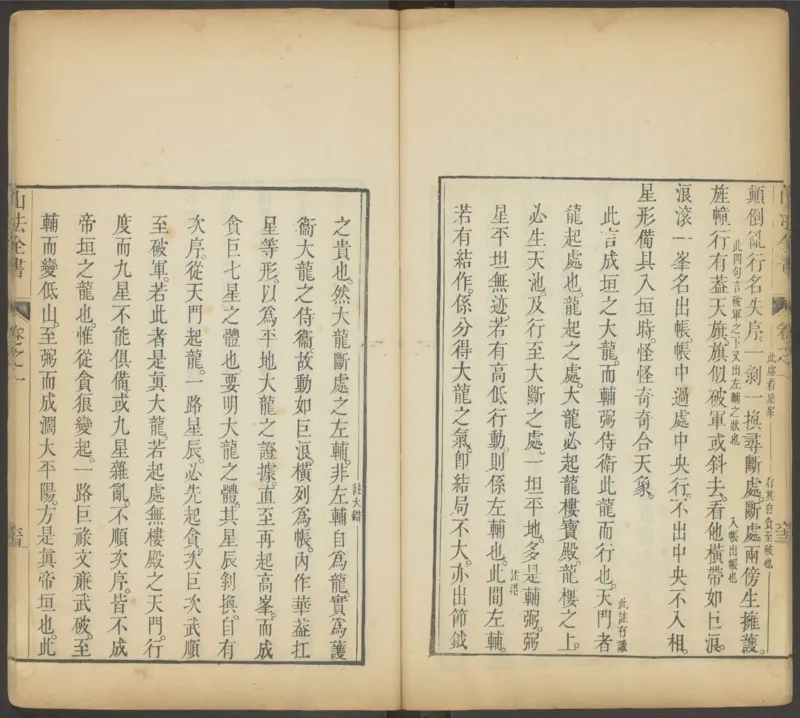 顛倒亂行名失序。一剝一換尋斷處。斷處兩傍生擁護。
此處看星峯
有其自貪至破也
旌幢行有蓋天旗。旗似破軍或斜去。看他橫帶如巨浪。
此四句言破軍之下又出左輔之狀也
入帳出帳也
浪滚一峯名出帳。帳中過處中央行。不出中央不入相。
星形備具入垣時。怪怪奇奇合天象。
此言成垣之大龍。而輔弼侍衛此龍而行也。天門者
此註有識
龍起處也。龍起之處。大龍必起龍樓寶殿。龍樓之上。
必生天池。及行至大斷之處。一坦平地。多是輔弼。弼
星平坦無迹。若有高低行動。則係左輔也。此間左輔。
註混
若有結作。係分得大龍之氣。卽結局不大。亦出節鉞
之貴也。然大龍斷處之左輔。非左輔自爲龍。實爲護
註大錯
衞大龍之侍衞。故動如巨浪。橫列爲帳。內作華葢扛
星等形。以爲平地大龍之證據。直至再起高峯。而成
貪巨七星之體也。要明大龍之體。其星辰剝換。自有
次序。從天門起龍。一路星辰。必先起貪。次巨次武。順
至破軍。若此者是眞大龍。若起處無樓殿之天門。行
度而九星不能俱備。或九星雜亂。不順次序。皆不成
帝垣之龍也。惟從貪狼變起。一路巨祿文亷武破。至
輔而變低山。至弼而成濶大平陽。方是眞帝垣也。此
山法全書
卷之一